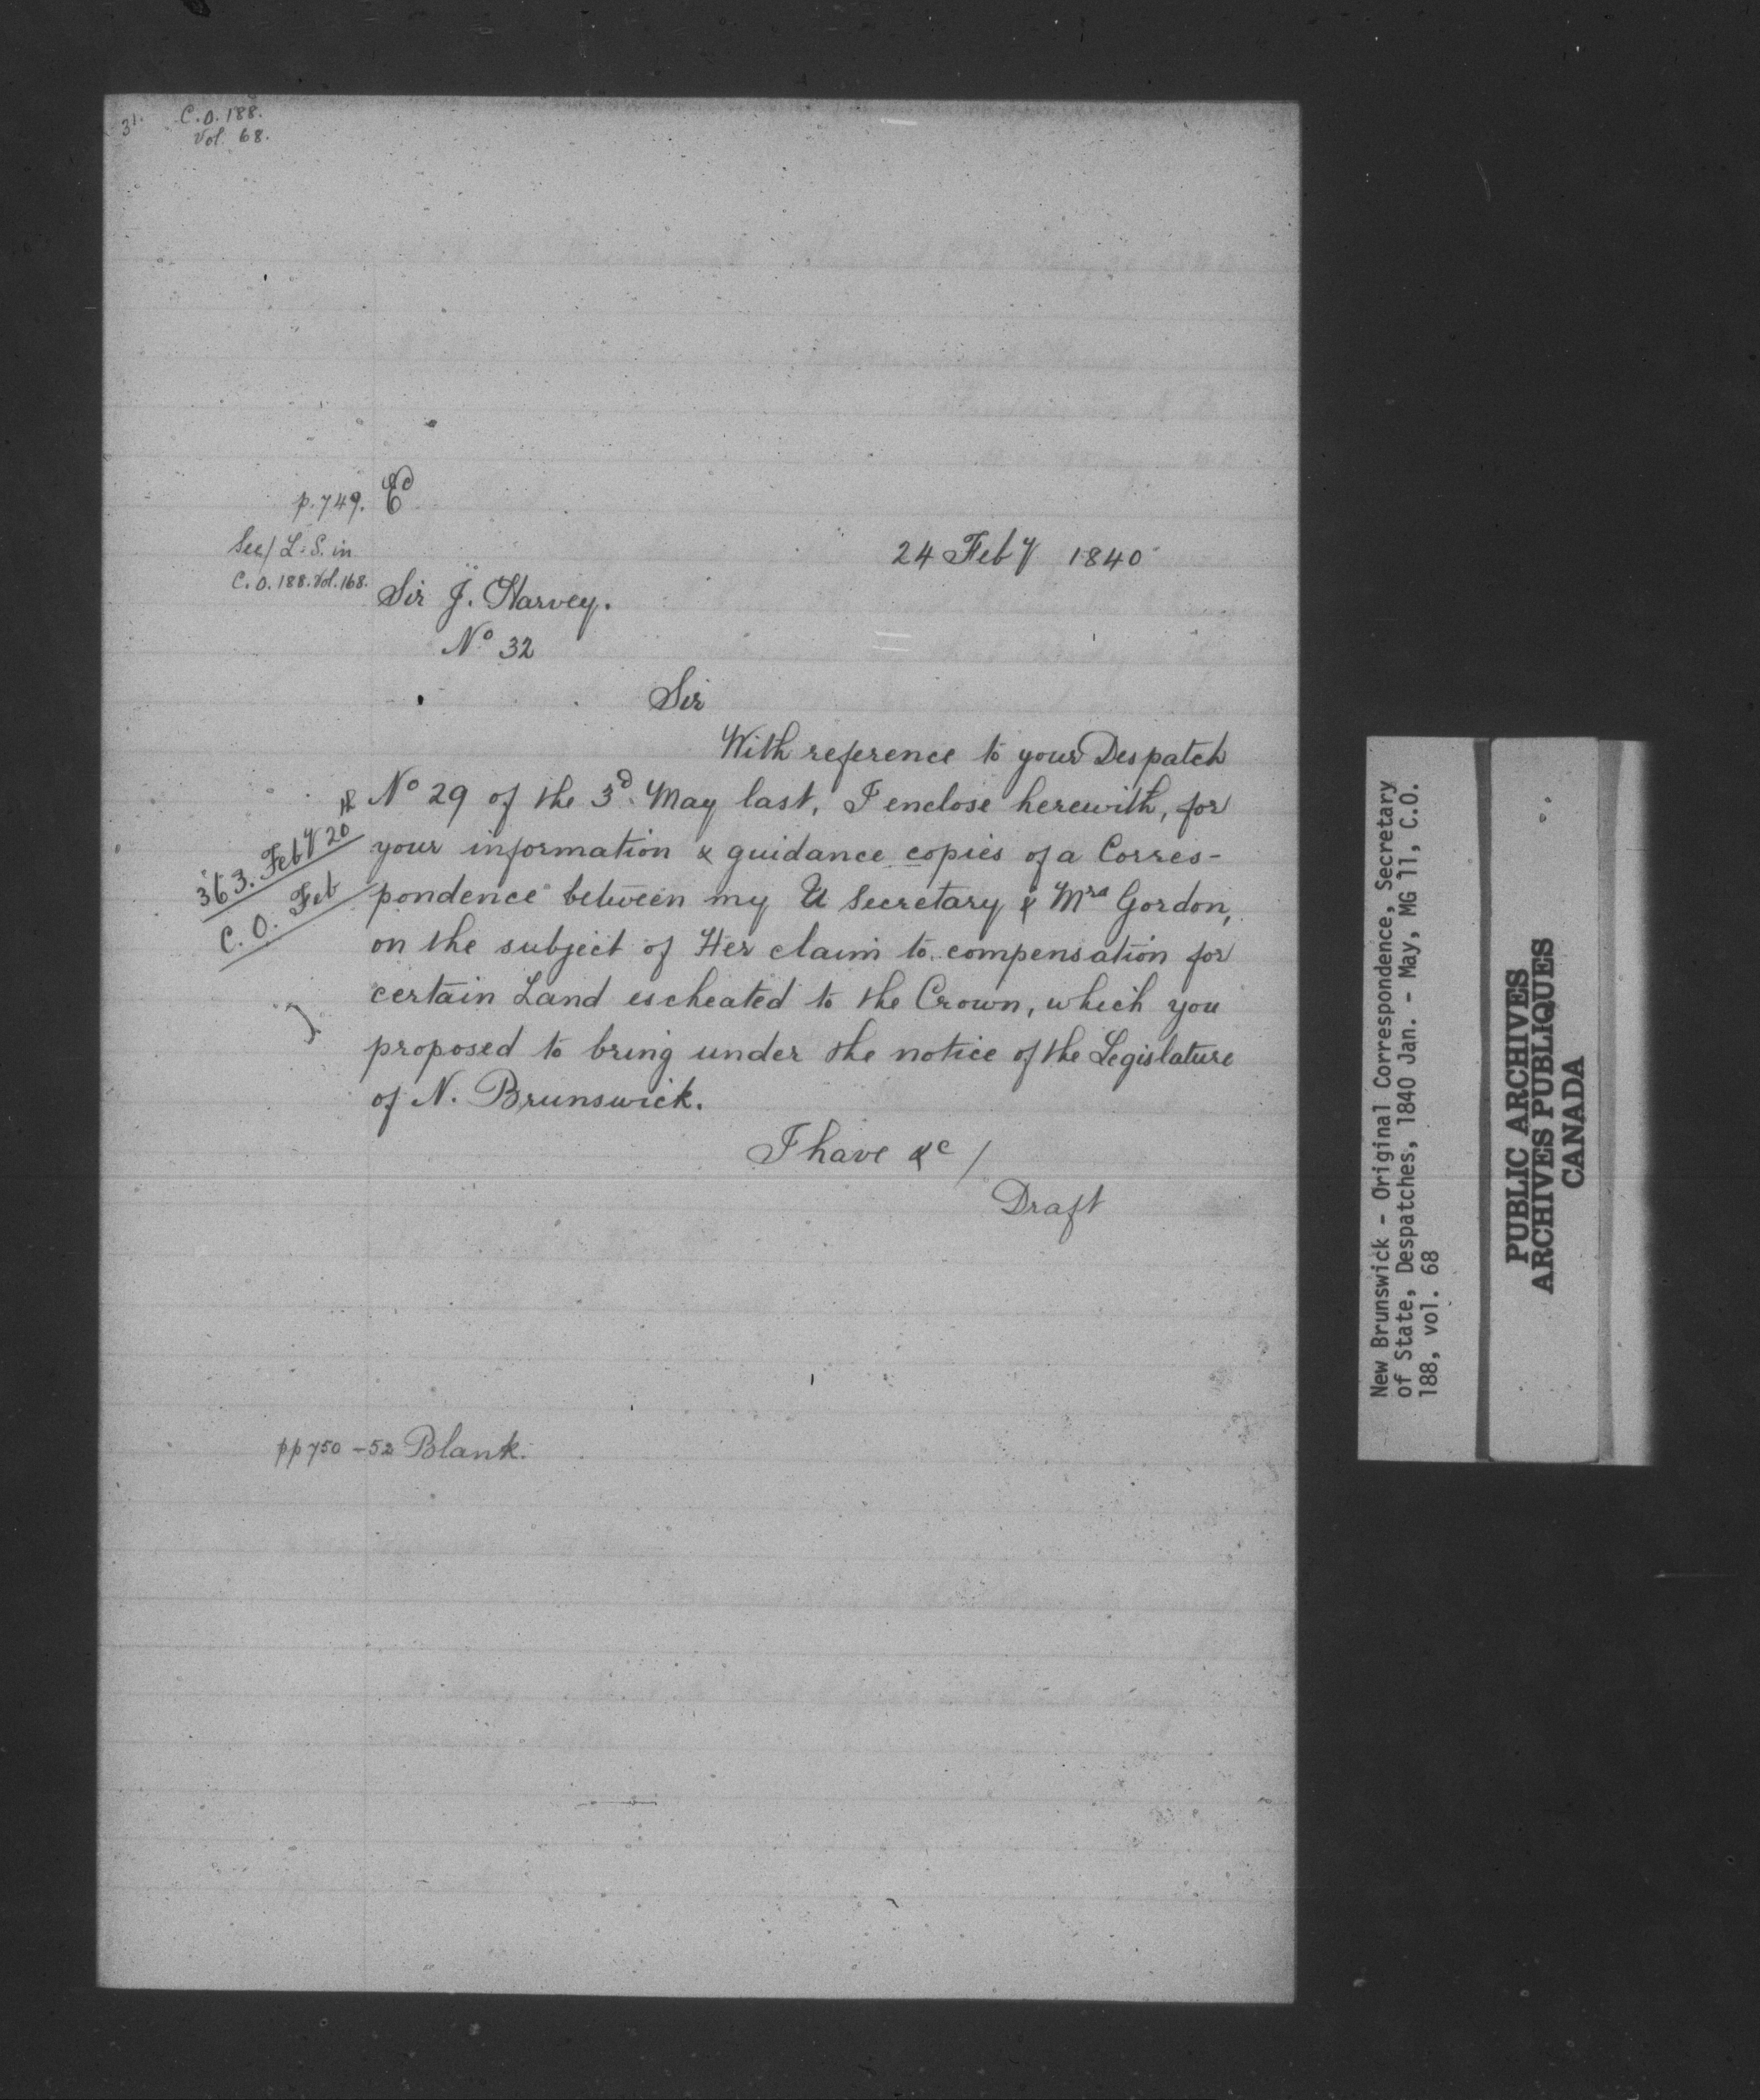 31. C.O. 188.
Vol. 68.
p. 749. Ed
See/ L. S. in
C.O. 188. Vol. 168.
24 Feby 1840
Sir J. Harvey.
No 32
Sir
With reference to your Despatch
No 29 of the 3d. May last, I enclose herewith, for
your information & guidance copies of a Corres-
363. Feby 20
pondence between my U Secretary & Mrs Gordon,
C. O. Feb
on the subject of Her claim to compensation for
certain Land escheated to the Crown, which you
proposed to bring under the notice of the Legislature
of N. Brunswick.
I have &c /
Draft
pp 750 - 52 Blank.
New Brunswick - Original Correspondence, Secretary
of State, Despatches, 1840 Jan. - May, MG 11, C.O.
188, vol. 68
PUBLIC ARCHIVES
ARCHIVES PUBLIQUES
CANADA